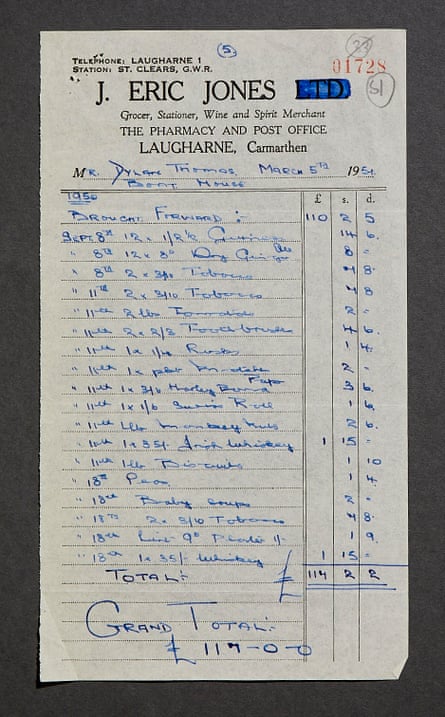 5
23
TELEPHONE: LAUGHARNE 1
STATION: ST. CLEARS, G.W.R.
01728
51
J. ERIC JONES LTD.
Grocer, Stationer, Wine and Spirit Merchant
THE PHARMACY AND POST OFFICE
LAUGHARNE, Carmarthen
MR. DYLAN THOMAS MARCH 5TH 1951
BOAT HOUSE
1950 £ s. d.
BROUGHT FORWARD :- 110 2 5
SEPT 8th 12 x 1/2½ 14 6
" 8th 12 x 8° Dry Ginger 8 -
" 8th 2 x 3/10 Tobacco 8
" 11th 2 x 3/10 Tobacco 8
" 11th 2 lbs 2 -
" 11th 2 x 2/3 Toothbrushes 6
" 11th 1 x 1/4 Rusks 1 4
" 11th 1 x 2 -
" 11th 1 x 3/6 3 6
" 11th 1 x 1/6 Swiss Roll 1 6
" 11th 1 lb Monkey Nuts 2 6
" 11th 1 x 35/- Irish Whiskey 1 15 -
" 11th 1 lb Biscuits 1 10
" 18th Peas 1 4
" 18th Baby soups 2 -
" 18th 2 x 3/10 Tobacco 8
" 18th 1 9
" 18th 1 x 35/- Whiskey 1 15 -
TOTAL:- £ 2 2
GRAND TOTAL:-
£